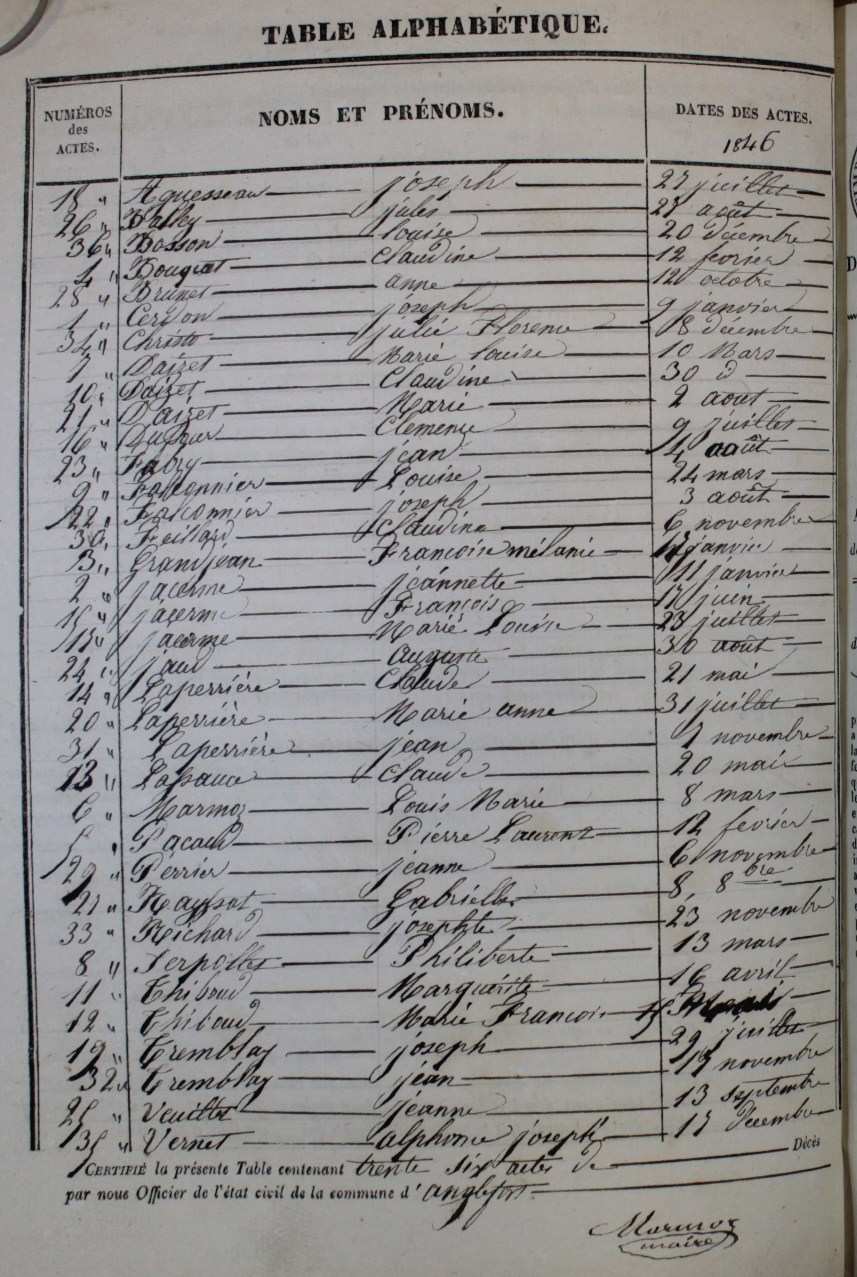 TABLE ALPHABÉTIQUE.
NUMÉROS des ACTES.
NOMS ET PRÉNOMS.
DATES DES ACTES.
1846
18 " Aguesseau joseph 27 juillet
26 " jules 27 août
36 " Bosson louise 20 décembre
4 " Bouquet Claudine 12 février
28 " Brunet anne 12 octobre
1 " Cerdon joseph 9 janvier
34 " Christo julie Florence 8 décembre
7 " Daizet Marie louise 10 Mars
10 " Daizet Claudine 30 d
21 " Daizet Marie 2 aout
16 " Clemence 9 juillet
23 " Fabry jean 4 août
9 " Falconnier Louise 24 mars
22 " Falconnier joseph 3 août
30 " Feillard Claudine 6 novembre
3 " Grandjean Francoise mélanie janvier
2 " jacerme jeannette 11 janvier
15 " jacerme Francois 17 juin
17 " jacerme Marie Louise 23 juillet
24 " jaud Auguste 30 août
14 " Laperrière Claude 21 mai
20 " Laperrière Marie anne 31 juillet
31 " Laperrière jean 7 novembre
13 " Claude 20 mai
6 " Marmoz Louis Marie 8 mars
5 " Pacaud Pierre Laurent 12 février
29 " Perrier jeanne 6 novembre
Gabrielle 8 8bre
33 " Richard josephte 23 novembre
8 " Serpollet Philiberte 13 mars
11 " Thiboud Marguerite 16 avril
12 " Thiboud Marie Francois 15
19 " Tremblay joseph 29 juillet
32 " Tremblay jean 17 novembre
25 " Veuillet jeanne 13 septembre
35 " Vernet alphonse joseph 17 décembre
CERTIFIÉ la présente Table contenant trente six actes de Décès
par nous Officier de l'état civil de la commune d'anglefort
Marmoz
maire